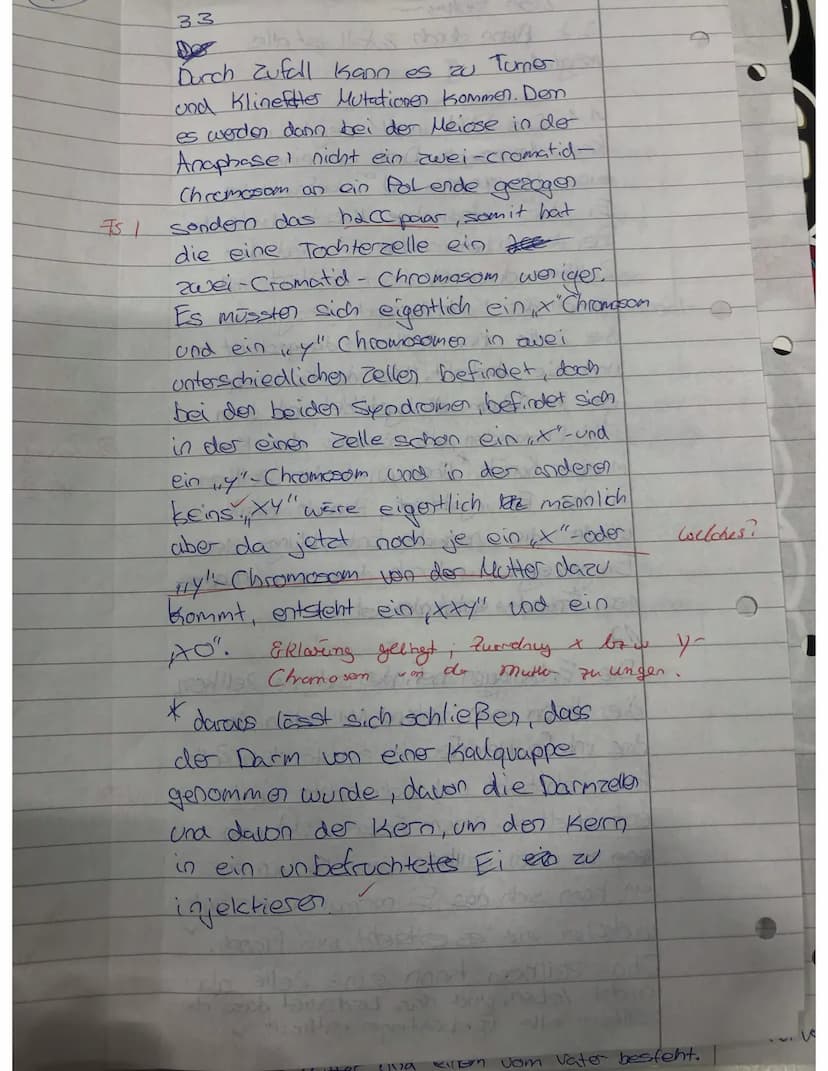 33
Durch Zufall kann es zu Turner
und Klinefelter Mutationen kommen. Den
es werden dann bei der Meiose in der
Anaphase 1 nicht ein zwei-cromatid-
Chromosom an ein Polende gezogen
Fs 1 sondern das hacc paar, somit hat
die eine Tochterzelle ein
zwei-Cromatid-Chromosom weniger.
Es müssten sich eigentlich ein „x" Chromosom
und ein „y" Chromosomen in zwei
unterschiedlichen Zellen befindet, doch
bei den beiden Syndromen, befindet sich
in der einen Zelle schon ein „x"-und
ein „y"-Chromosom und in der anderen
keins. „XY" wäre eigentlich männlich
aber da jetzt noch je ein „x"-oder welches?
„y"-Chromosom von der Mutter dazu
kommt, entsteht ein „xxy" und ein
„x0". Erklärung gelingt; Zuordnung x bzw y-
Chromosom von der Mutter zu ungen.
* daraus lässt sich schließen, dass
der Darm von einer Kaulquappe
genommen wurde, davon die Darmzellen
und davon der Kern, um den Kern
in ein unbefruchtetes Ei zu
injektieren
vom Vater besteht.